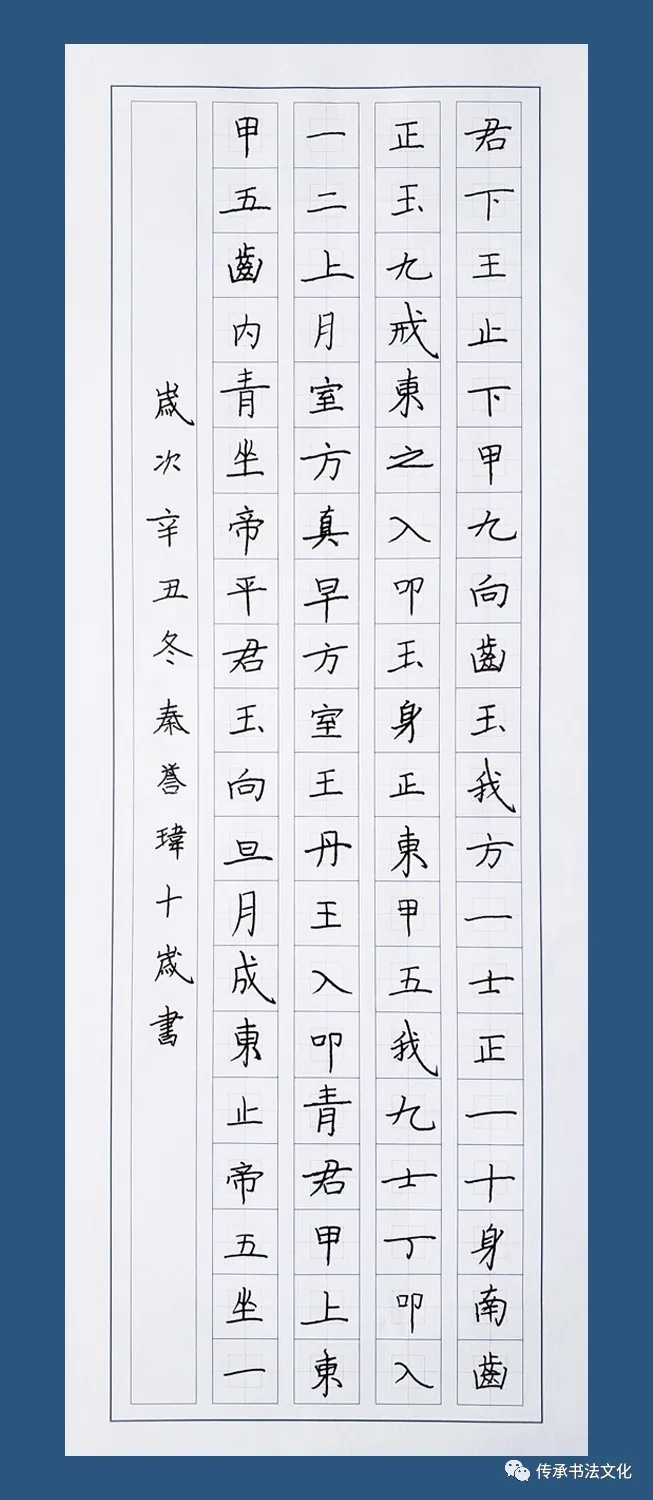 君下王止下甲九向齒玉我方一士正一十身南齒
正玉九戒東之入叩玉身正東甲五我九士丁叩入
一二上月室方真早方室王丹王入叩青君甲上東
甲五齒内青坐帝平君玉向旦月成東止帝五坐一
歲次辛丑冬秦誉瑋十歲書
传承书法文化